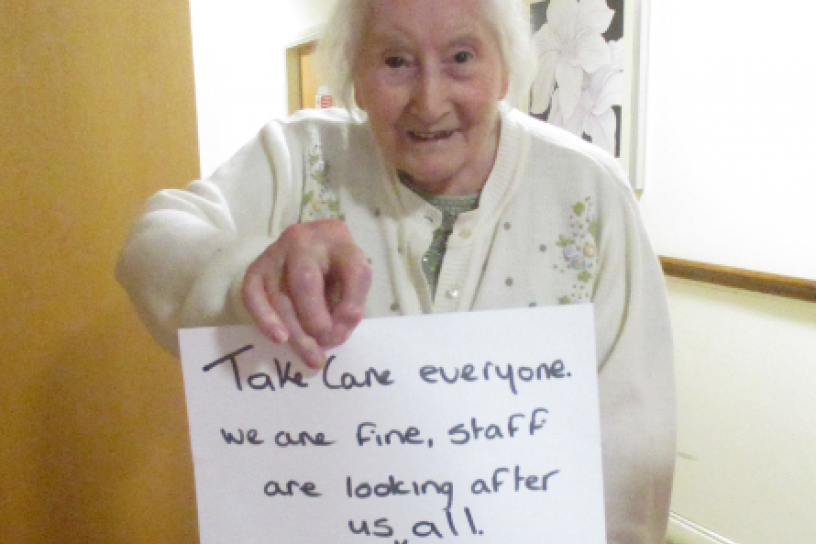 Take Care everyone.
we are fine, staff
are looking after
us all.